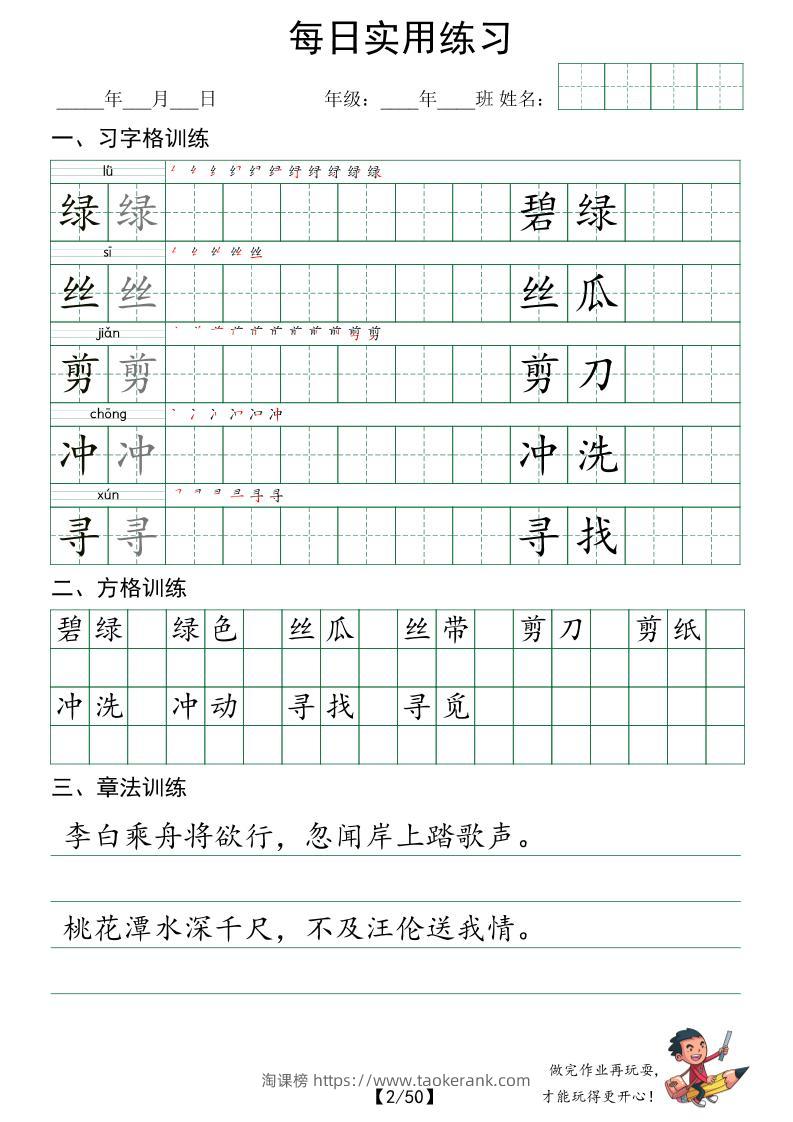 每日实用练习
_____年___月___日 年级：____年____班 姓名：
一、习字格训练
lǜ
绿 绿 碧 绿
sī
丝 丝 丝 瓜
jiǎn
剪 剪 剪 刀
chōng
冲 冲 冲 洗
xún
寻 寻 寻 找
二、方格训练
碧 绿 绿 色 丝 瓜 丝 带 剪 刀 剪 纸
冲 洗 冲 动 寻 找 寻 觅
三、章法训练
李白乘舟将欲行，忽闻岸上踏歌声。
桃花潭水深千尺，不及汪伦送我情。
做完作业再玩耍，
淘课榜 https://www.taokerank.com
【2/50】
才能玩得更开心！